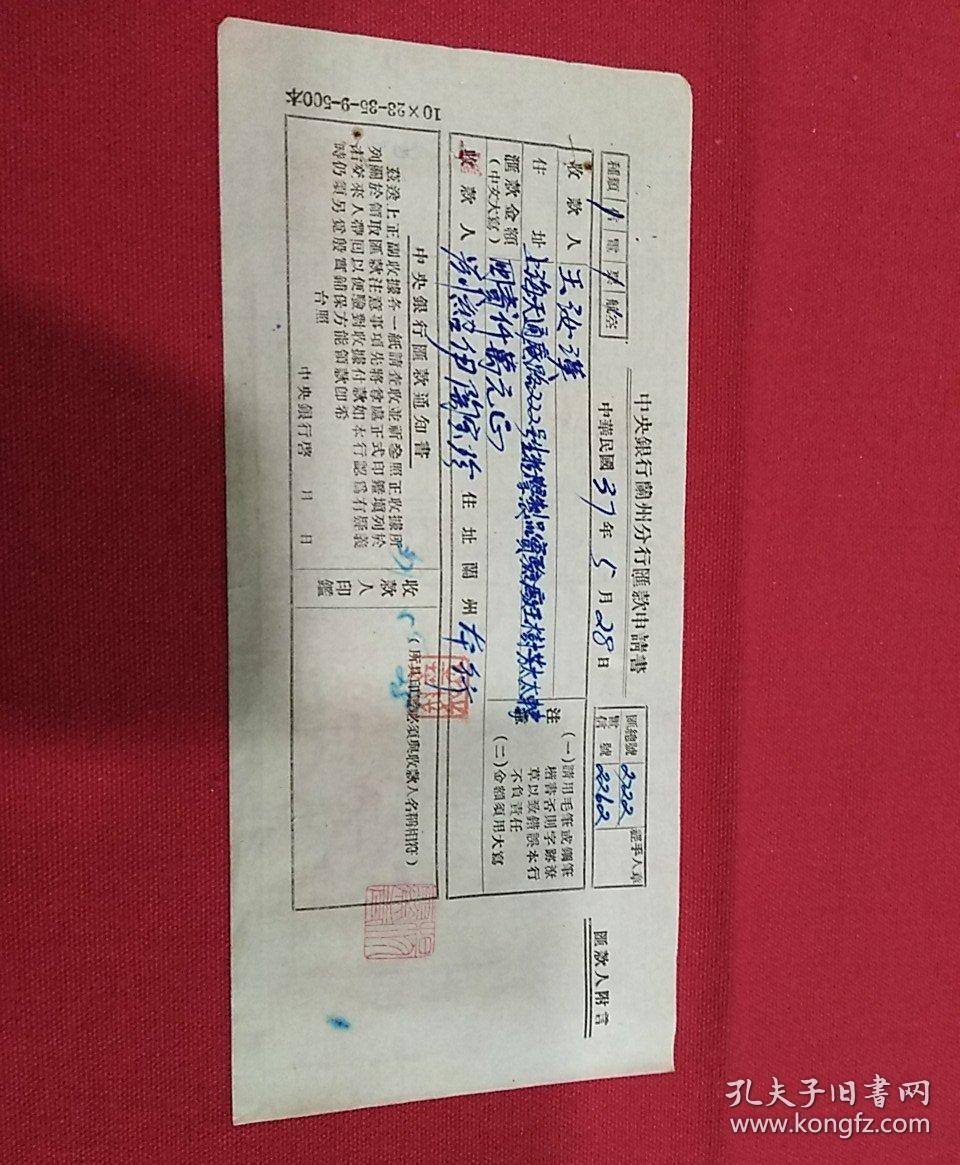 中央銀行蘭州分行匯款申請書
中華民國37年5月28日
匯總號 2722
電信號 2262
經手人章
匯款人附言
種類 信 電 票 航空
收款人 王汝瑾
住址 上海天通庵路222號
匯款金額
(中文大寫)
國幣 仟萬元正
收款人
住址 蘭州 本行
注
(一)請用毛筆或鋼筆
楷書否則字跡潦
草以致錯誤本行
不負責任
(二)金額須用大寫
中央銀行匯款通知書
茲送上正副收據各一紙請查收並祈參照正收據所
列關於領取匯款注意事項先將尊處正式印鑑填列於
右交來人帶回以便驗對收據付款如本行認爲有疑義
時仍須另覓殷實鋪保方能領款卽希
台照
中央銀行啓 月 日
收款人印鑑
(所具印鑑必須與收款人名稱相符)
10×23-35-9-500本
孔夫子旧书网
www.kongfz.com